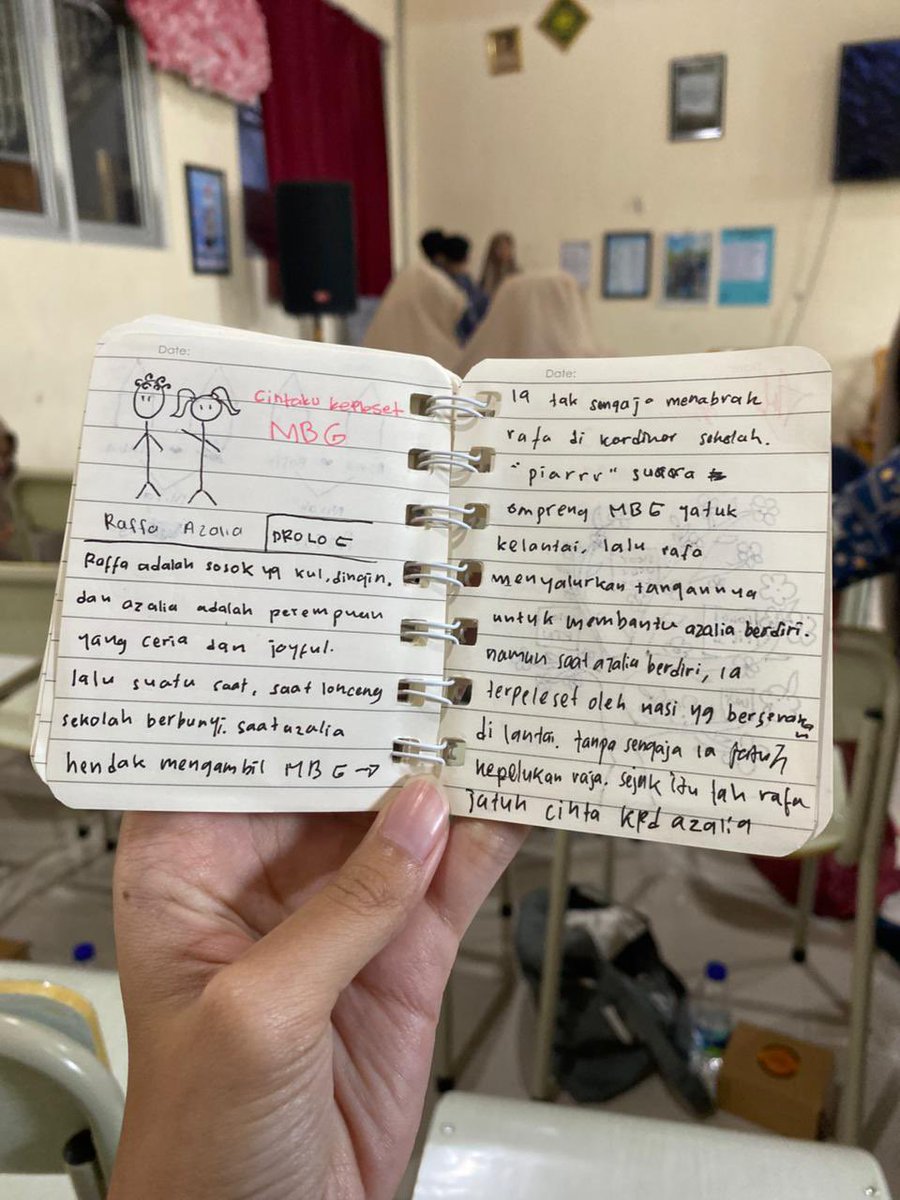 Date:
Cintaku kepleset
MBG
Raffa Azalia
PROLOG
Raffa adalah sosok yg kul, dingin.
dan azalia adalah perempuan
yang ceria dan joyful.
lalu suatu saat, saat lonceng
sekolah berbunyi. saat azalia
hendak mengambil MBG →
Date:
Ia tak sengaja menabrak
rafa di kordinor sekolah.
"piarrr" suara
ompreng MBG yatuk
kelantai. lalu rafa
menyalurkan tangannya
untuk membantu azalia berdiri.
namun saat azalia berdiri, ia
terpeleset oleh nasi yg berserakan
di lantai. tanpa sengaja ia jatuh
kepelukan raja. sejak itu lah rafa
jatuh cinta kpd azalia